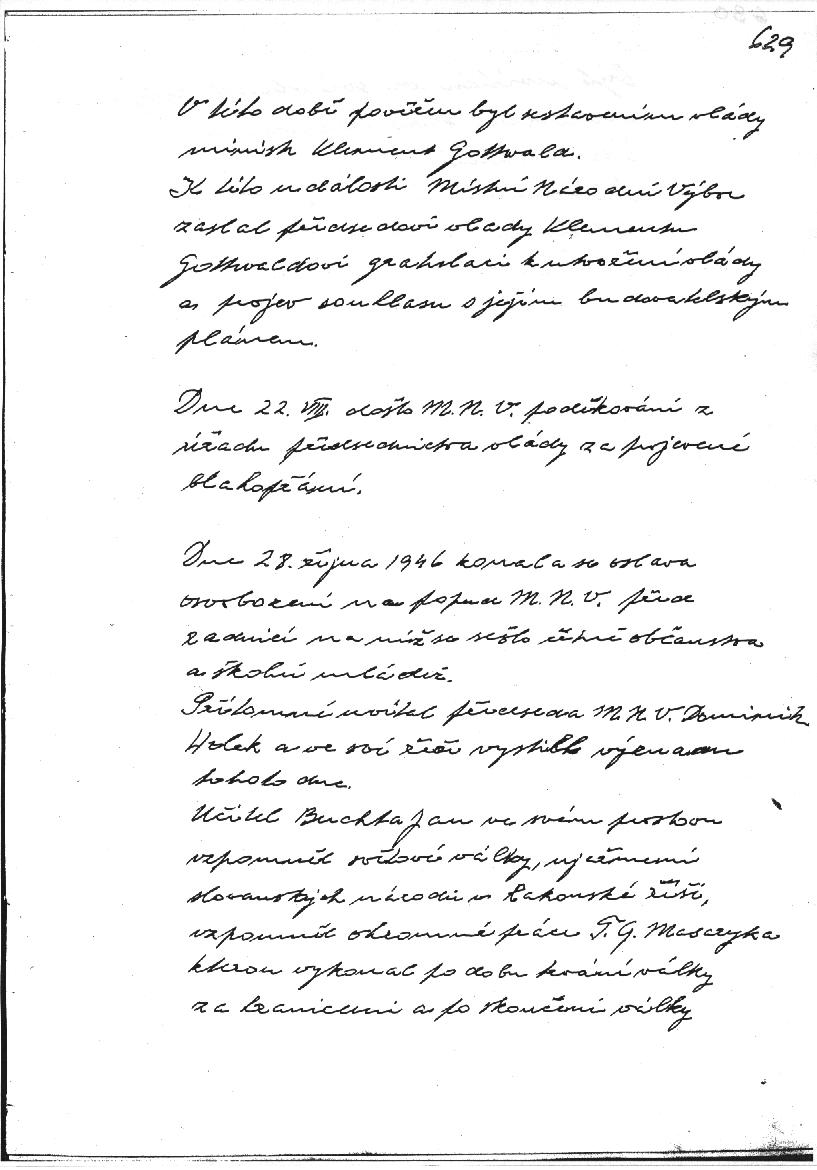 629
V této době pověřen byl sestavením vlády
ministr Klement Gottwald.
K této události Místní Národní Výbor
zaslal předsedovi vlády Klementu
Gottwaldovi gratulaci k utvoření vlády
a projev souhlasu s jejím budovatelským
plánem.
Dne 22. VIII. došlo M. N. V. poděkování z
úřadu předsednictva vlády za projevené
blahopřání.
Dne 28. října 1946 konala se oslava
osvobození na popud M. N. V. před
radnicí na níž se sešlo četné občanstvo
a školní mládež.
Přítomné uvítal předseda M. N. V. Dominik
a ve své řeči vystihl význam
tohoto dne.
Učitel Buchta Jan ve svém proslovu
vzpomněl světové války, ujařmení
slovanských národů v Rakouské říši,
vzpomněl ohromné práce T. G. Masaryka
kterou vykonal po dobu trvání války
za hranicemi a po skončení války